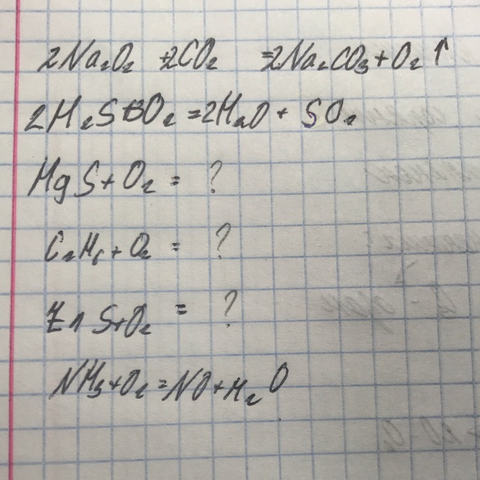 2Na₂O₂ + 2CO₂ = 2Na₂CO₃ + O₂ ↑
2H₂S + 3O₂ = 2H₂O + SO₂
HgS + O₂ = ?
C₂H₆ + O₂ = ?
ZnS + O₂ = ?
NH₃ + O₂ = NO + H₂O